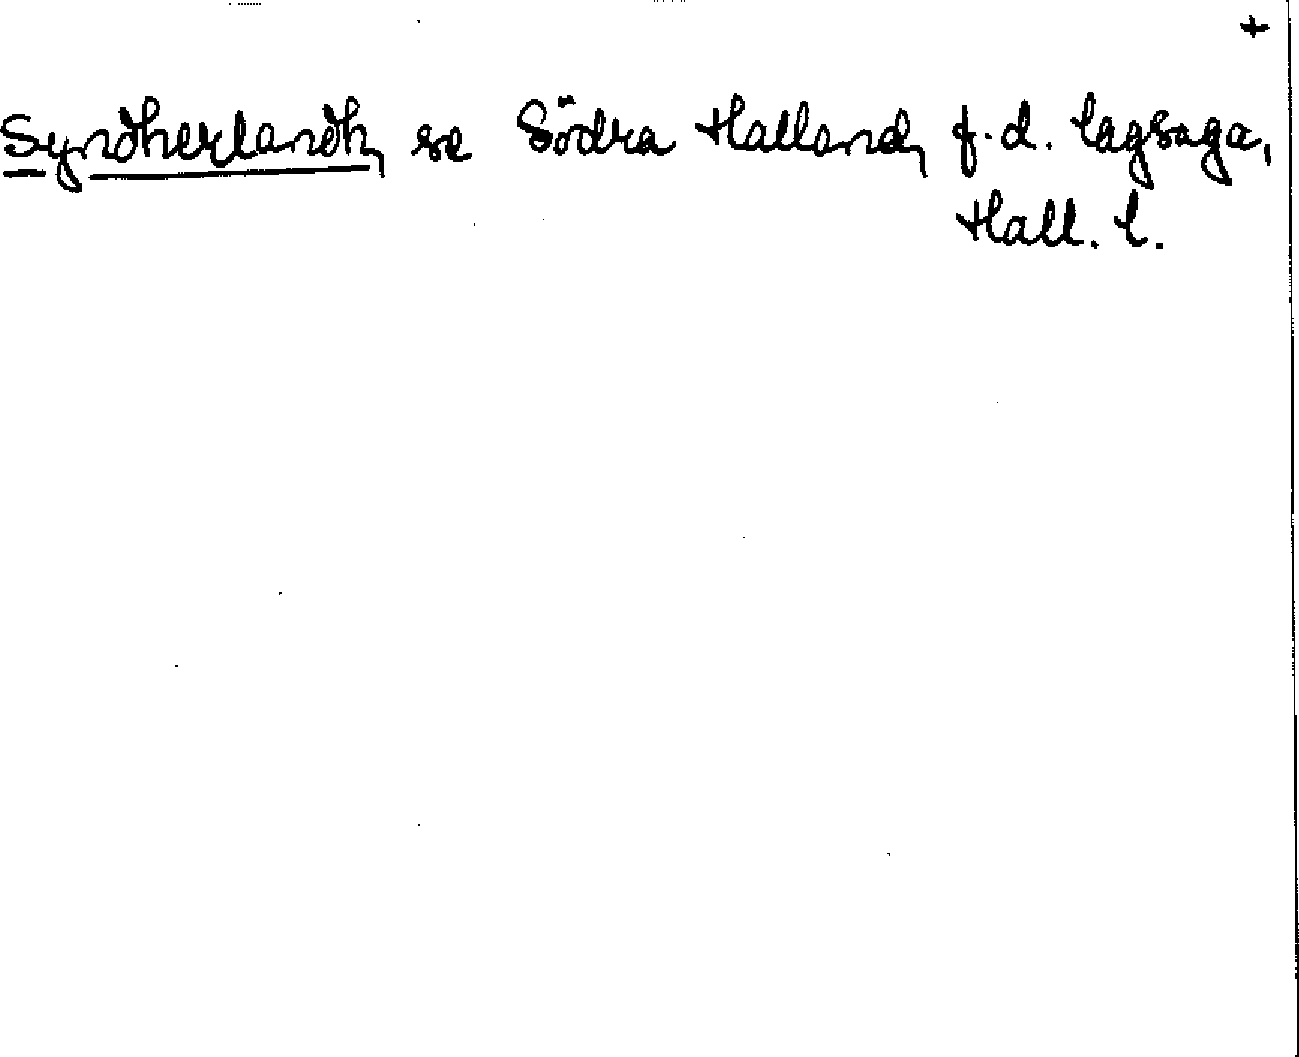 +
Syndherlandh, se Södra Halland, f.d. lagsaga,
Hall. l.